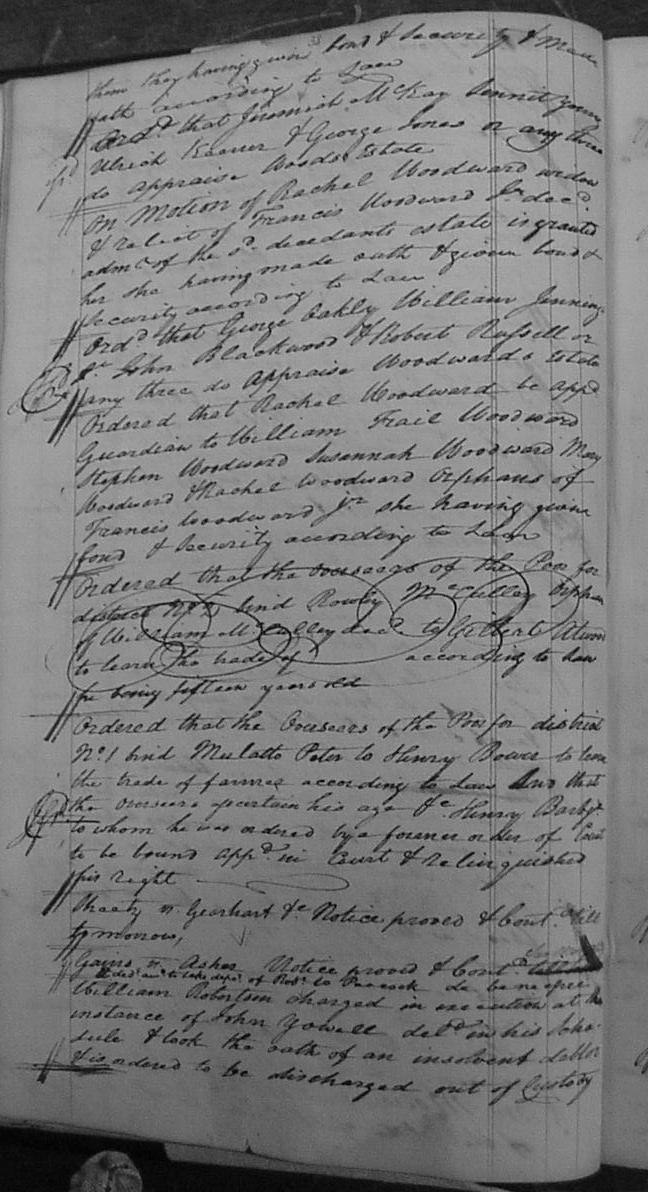 them they having given bond & Security & Made
oath according to Law
Ord.d that Jeremiah McKay Bennit
Ulrich & George Jones or any three
do appraise Woods Estate
On Motion of Rachel Woodward widow
& Relict of Francis Woodward Jr. dec.d
adm.n of the s.d decedants estate is granted
her she having made oath & given bond &
Security according to Law
Ord.d that George Oakly William Jennings
Sr. John Blackwood & Robert Russell or
any three do appraise Woodwards Estate
Ordered that Rachel Woodward be app.d
Guardian to William Frail Woodward
Stephen Woodward Susannah Woodward Mary
Woodward & Rachel Woodward Orphans of
Francis Woodward Jr. she having given
bond & Security according to Law
Ordered that the overseers of the Poor for
district No. 2 bind Rowley McCulley Orphan
of William McCulley dec.d to Gilbert
to learn the trade of according to Law
he being fifteen years old
Ordered that the Overseers of the Poor for district
No. 1 bind Mulatto Peter to Henry Bower to learn
the trade of farmer according to Law And that
the overseers ascertain his age &c. Henry
to whom he was ordered by a former order of Court
to be bound app.d in Court & relinquished
his right
vs. Gearhart &c Notice proved & Cont. till
tomorrow,
Gains vs. Asher Notice proved & Cont.
to take depo. of Rob.t de bene esse
William Robertson charged in execution at the
instance of John Yowell del.d in his Sche-
dule & took the oath of an insolvent debtor
& is ordered to be discharged out of Custody